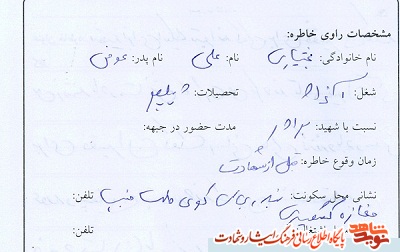 مشخصات راوی خاطره:
نام خانوادگی: بختیاری نام: علی نام پدر: عوض
شغل: آزاد تحصیلات: دیپلم
نسبت با شهید: برادر مدت حضور در جبهه:
زمان وقوع خاطره: قبل از شهادت
نشانی محل سکونت: کوی طلاب تلفن:
مغازه تلفن:
نوید شاهد پایگاه اطلاع رسانی فرهنگ ایثار و شهادت